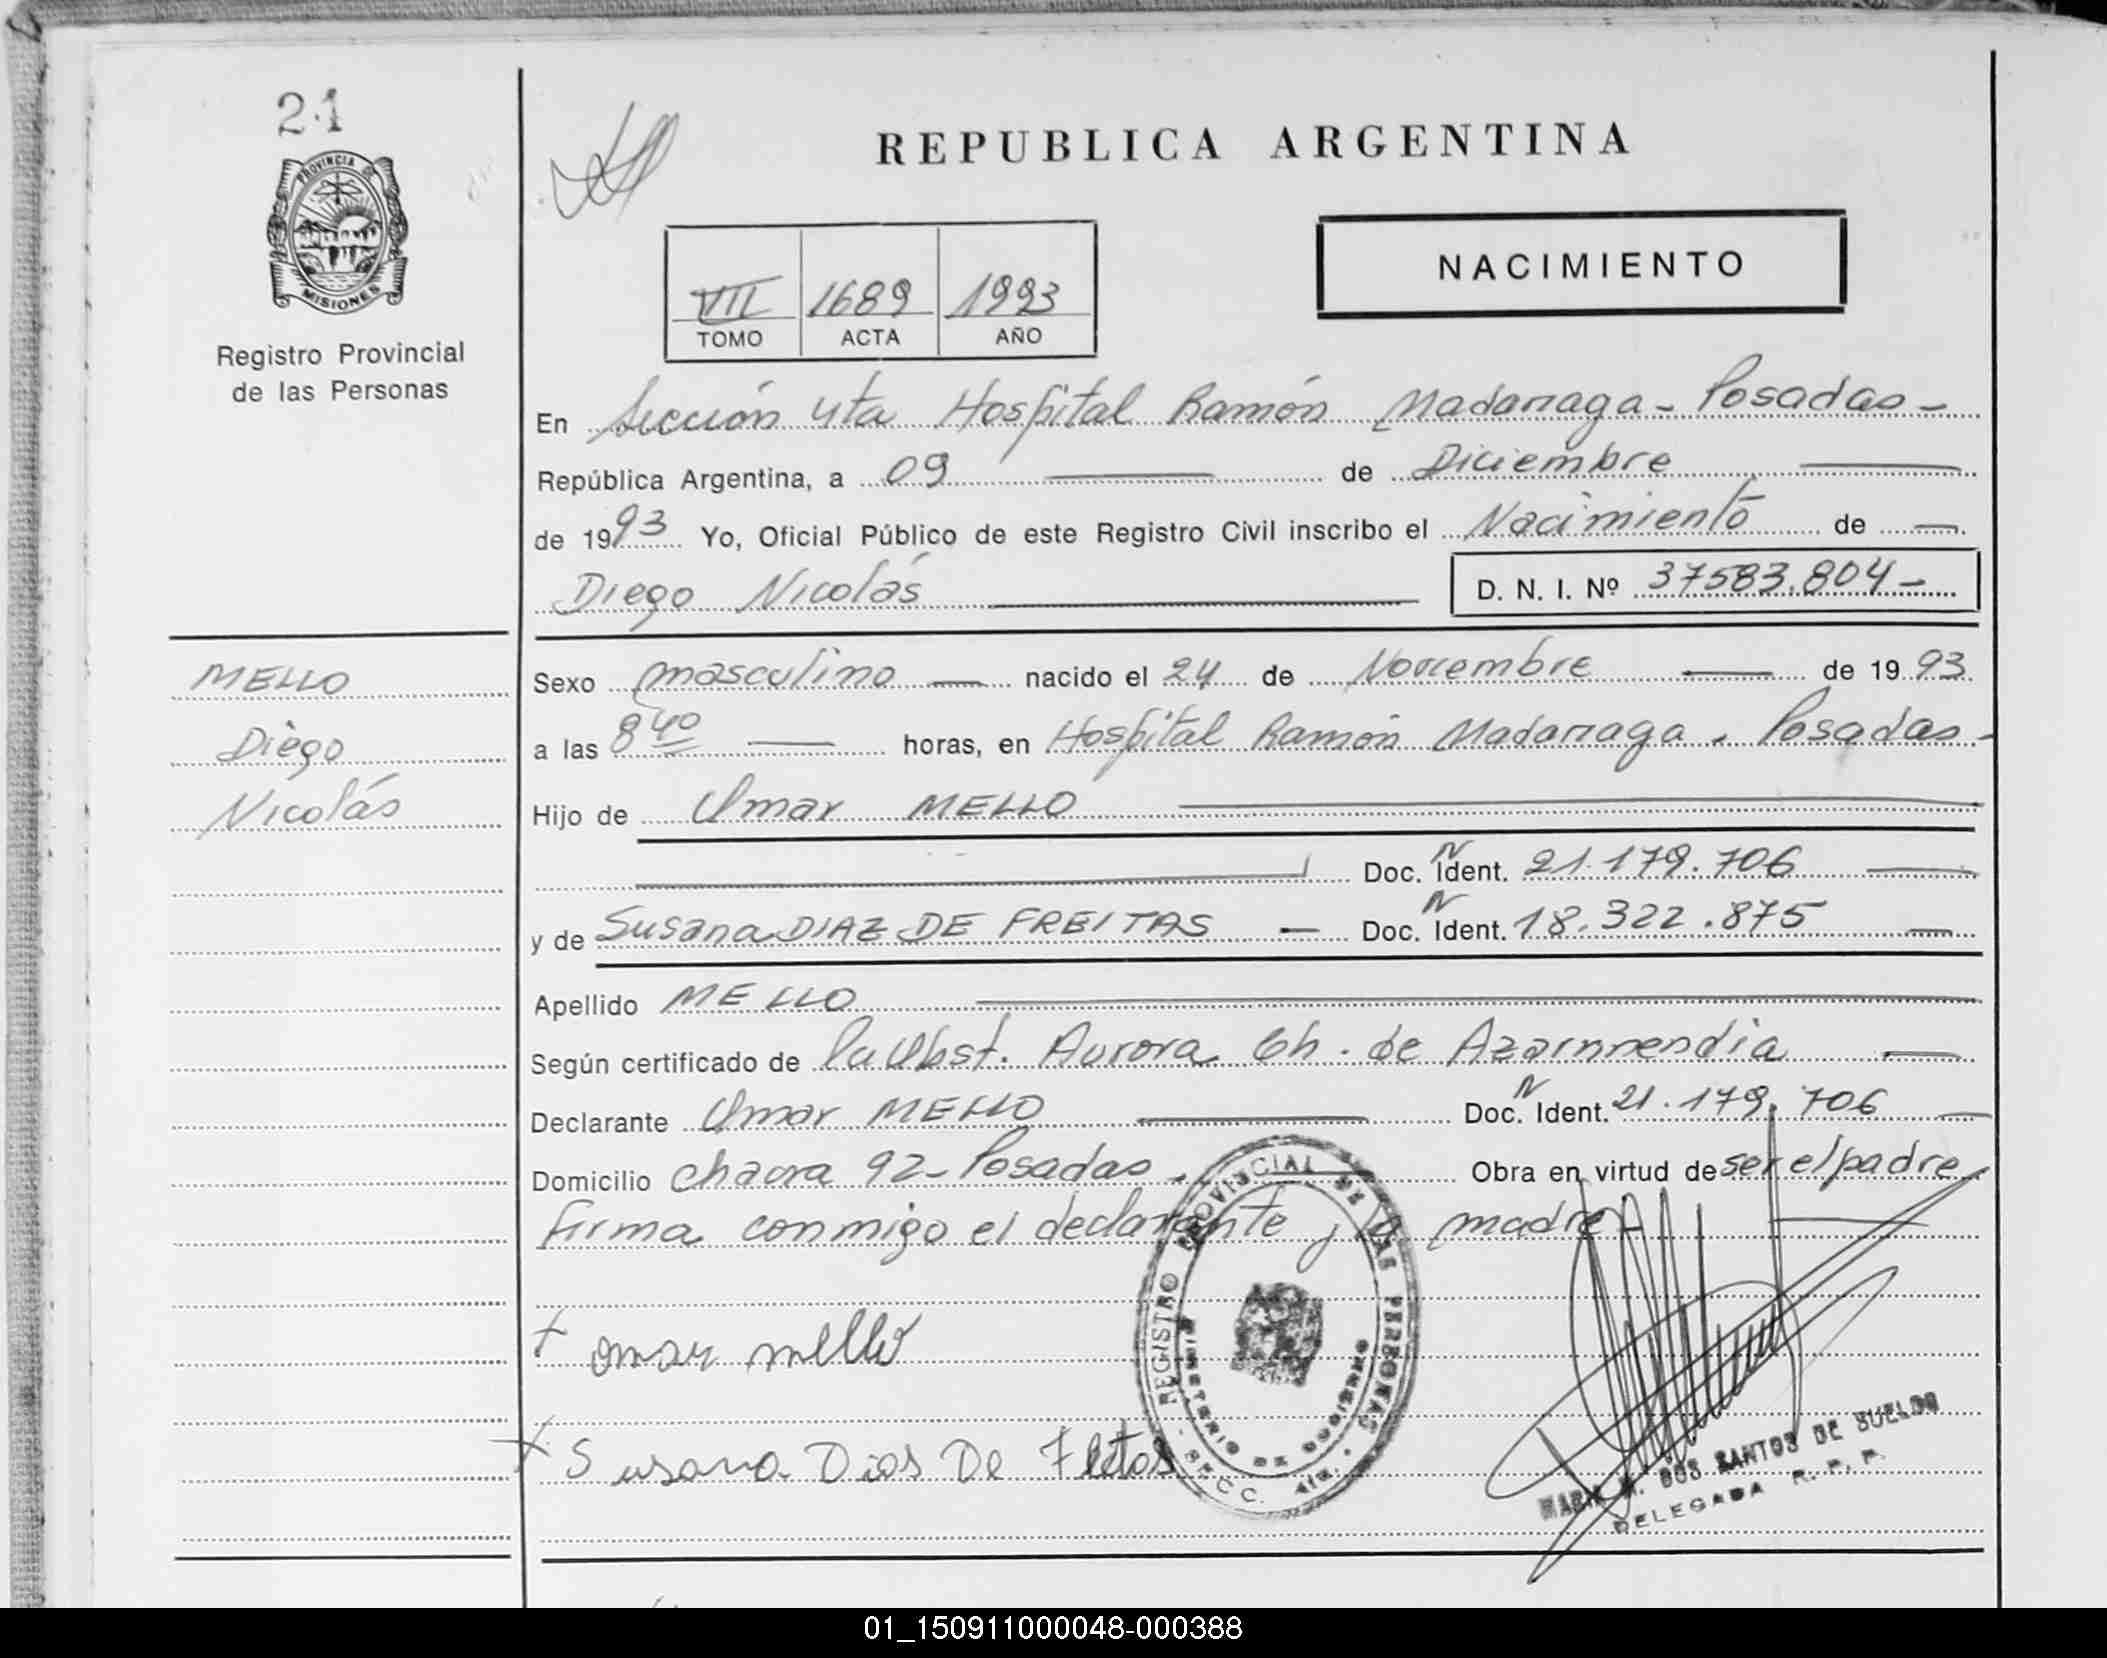 21
PROVINCIA DE
MISIONES
Registro Provincial
de las Personas
REPUBLICA ARGENTINA
NACIMIENTO
VII 1689 1993
TOMO ACTA AÑO
En Sección 4ta Hospital Ramón Madariaga - Posadas -
República Argentina, a 09 de Diciembre
de 1993 Yo, Oficial Público de este Registro Civil inscribo el Nacimiento de
Diego Nicolás D. N. I. Nº 37583.804 -
MELLO
Diego
Nicolás
Sexo masculino nacido el 24 de Noviembre de 1993
a las 8 40 horas, en Hospital Ramón Madariaga. Posadas -
Hijo de Omar MELLO
Doc. Ident. N 21.179.706
y de Susana DIAZ DE FREITAS - Doc. Ident. N 18.322.875
Apellido MELLO
Según certificado de la Obst. Aurora Ch. de
Declarante Omar MELLO Doc. Ident. N 21.179.706
Domicilio chacra 92 - Posadas. Obra en virtud de ser el padre
firma conmigo el declarante y la madre -
+ omar mello
+ Susana Dias De
REGISTRO PROVINCIAL DE LAS PERSONAS
MINISTERIO DE GOBIERNO
- SECC. 4ta. -
DOS SANTOS DE SUELDO
DELEGADA R. P. P.
01_150911000048-000388